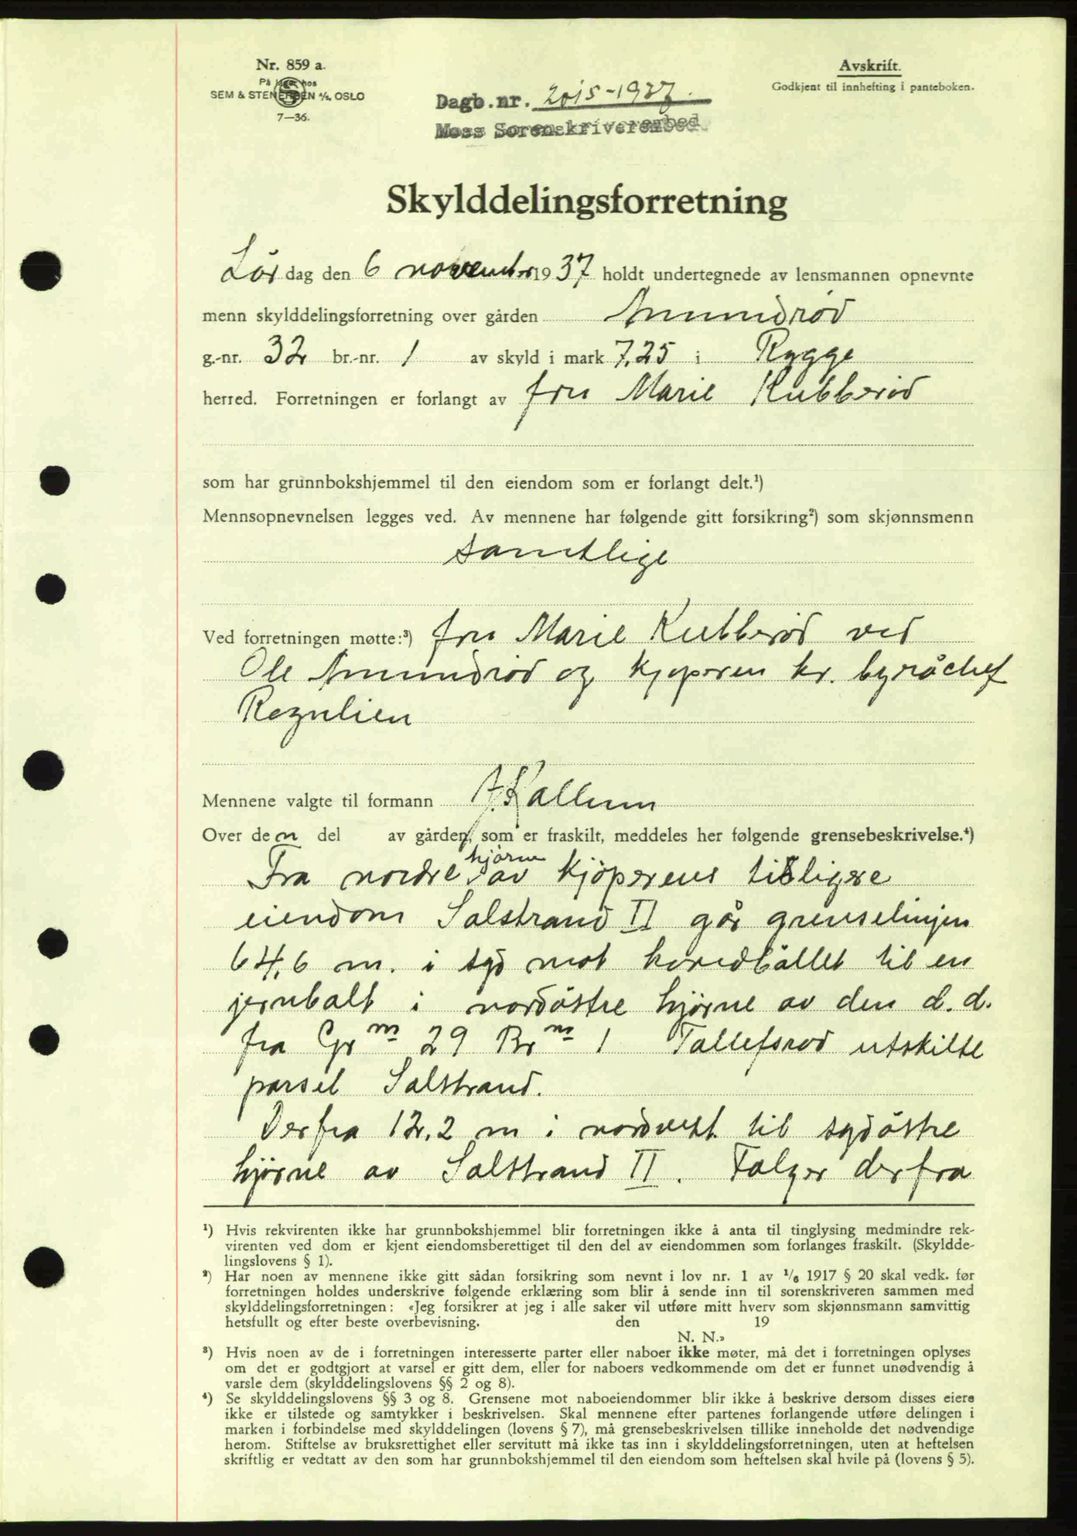 Nr. 859 a.
På lager hos
SEM & STENERSEN A/S, OSLO
7—36.
Avskrift.
Godkjent til innhefting i panteboken.
Dagb.nr. 2015-1937.
Moss Sorenskriverembed.
Skylddelingsforretning
Lör dag den 6 november 1937 holdt undertegnede av lensmannen opnevnte
menn skylddelingsforretning over gården Amundrød
g.-nr. 32 br.-nr. 1 av skyld i mark 7,25 i Rygge
herred. Forretningen er forlangt av fru Marie Kubberød
som har grunnbokshjemmel til den eiendom som er forlangt delt.¹)
Mennsopnevnelsen legges ved. Av mennene har følgende gitt forsikring²) som skjønnsmenn
samtlige
Ved forretningen møtte:³) fru Marie Kubberød ved
Ole Amundrød og kjøperen hr. byråchef
Rognlien
Mennene valgte til formann A. Kallum
Over den del av gården, som er fraskilt, meddeles her følgende grensebeskrivelse.⁴)
Fra nordre hjørne av kjöperens tidligere
eiendom Salstrand II går grenselinjen
64,6 m. i syd mot hovedbållet til en
jernbolt i nordöstre hjörne av den d.d.
fra Gr nr 29 Br nr 1 Tallefsrød utskilte
parsel Salstrand.
Derfra 12,2 m i nordvest til sydöstre
hjörne av Salstrand II. Følger derfra
¹) Hvis rekvirenten ikke har grunnbokshjemmel blir forretningen ikke å anta til tinglysing medmindre rek-
virenten ved dom er kjent eiendomsberettiget til den del av eiendommen som forlanges fraskilt. (Skyldde-
lingslovens § 1).
²) Har noen av mennene ikke gitt sådan forsikring som nevnt i lov nr. 1 av 1/6 1917 § 20 skal vedk. før
forretningen holdes underskrive følgende erklæring som blir å sende inn til sorenskriveren sammen med
skylddelingsforretningen: «Jeg forsikrer at jeg i alle saker vil utføre mitt hverv som skjønnsmann samvittig
hetsfullt og efter beste overbevisning. den 19
N. N.»
³) Hvis noen av de i forretningen interesserte parter eller naboer ikke møter, må det i forretningen oplyses
om det er godtgjort at varsel er gitt dem, eller for naboers vedkommende om det er funnet unødvendig å
varsle dem (skylddelingslovens §§ 2 og 8).
⁴) Se skylddelingslovens §§ 3 og 8. Grensene mot naboeiendommer blir ikke å beskrive dersom disses eiere
ikke er tilstede og samtykker i beskrivelsen. Skal mennene efter partenes forlangende utføre delingen i
marken i forbindelse med skylddelingen (lovens § 7), må grensebeskrivelsen tillike inneholde det nødvendige
herom. Stiftelse av bruksrettighet eller servitutt må ikke tas inn i skylddelingsforretningen, uten at heftelsen
skriftlig er vedtatt av den som har grunnbokshjemmel til den eiendom som heftelsen skal hvile på (lovens § 5).